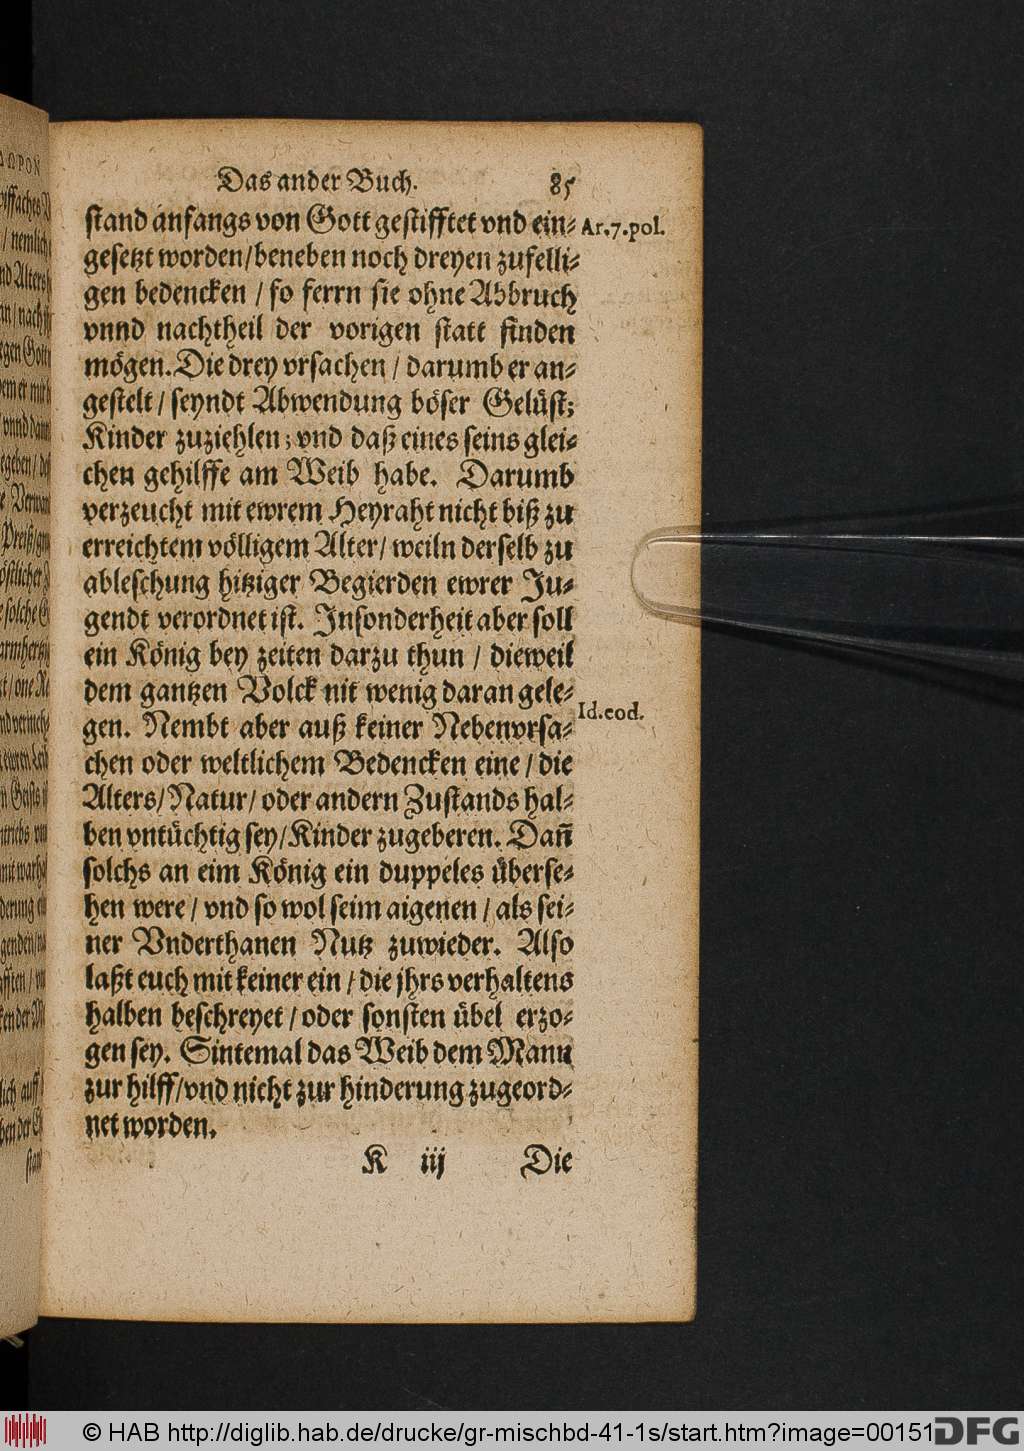 Das ander Buch. 85
stand anfangs von Gott gestifftet vnd ein-
Ar. 7. pol.
gesetzt worden / beneben noch dreyen zufelli-
gen bedencken / so ferrn sie ohne Abbruch
vnnd nachtheil der vorigen statt finden
mögen. Die drey vrsachen / darumb er an-
gestelt / seyndt Abwendung böser Gelüst;
Kinder zuziehlen; vnd daß eines seins glei-
chen gehilffe am Weib habe. Darumb
verzeucht mit ewrem Heyraht nicht biß zu
erreichtem völligem Alter / weiln derselb zu
ableschung hitziger Begierden ewrer Ju-
gendt verordnet ist. Insonderheit aber soll
ein König bey zeiten darzu thun / dieweil
dem gantzen Volck nit wenig daran gele-
Id. eod.
gen. Nembt aber auß keiner Nebenvrsa-
chen oder weltlichem Bedencken eine / die
Alters / Natur / oder andern Zustands hal-
ben vntüchtig sey / Kinder zugeberen. Dañ
solchs an eim König ein duppeles überse-
hen were / vnd so wol seim aigenen / als sei-
ner Vnderthanen Nutz zuwieder. Also
laßt euch mit keiner ein / die jhrs verhaltens
halben beschreyet / oder sonsten übel erzo-
gen sey. Sintemal das Weib dem Mann
zur hilff / vnd nicht zur hinderung zugeord-
net worden.
K iij Die
© HAB http://diglib.hab.de/drucke/gr-mischbd-41-1s/start.htm?image=00151
DFG